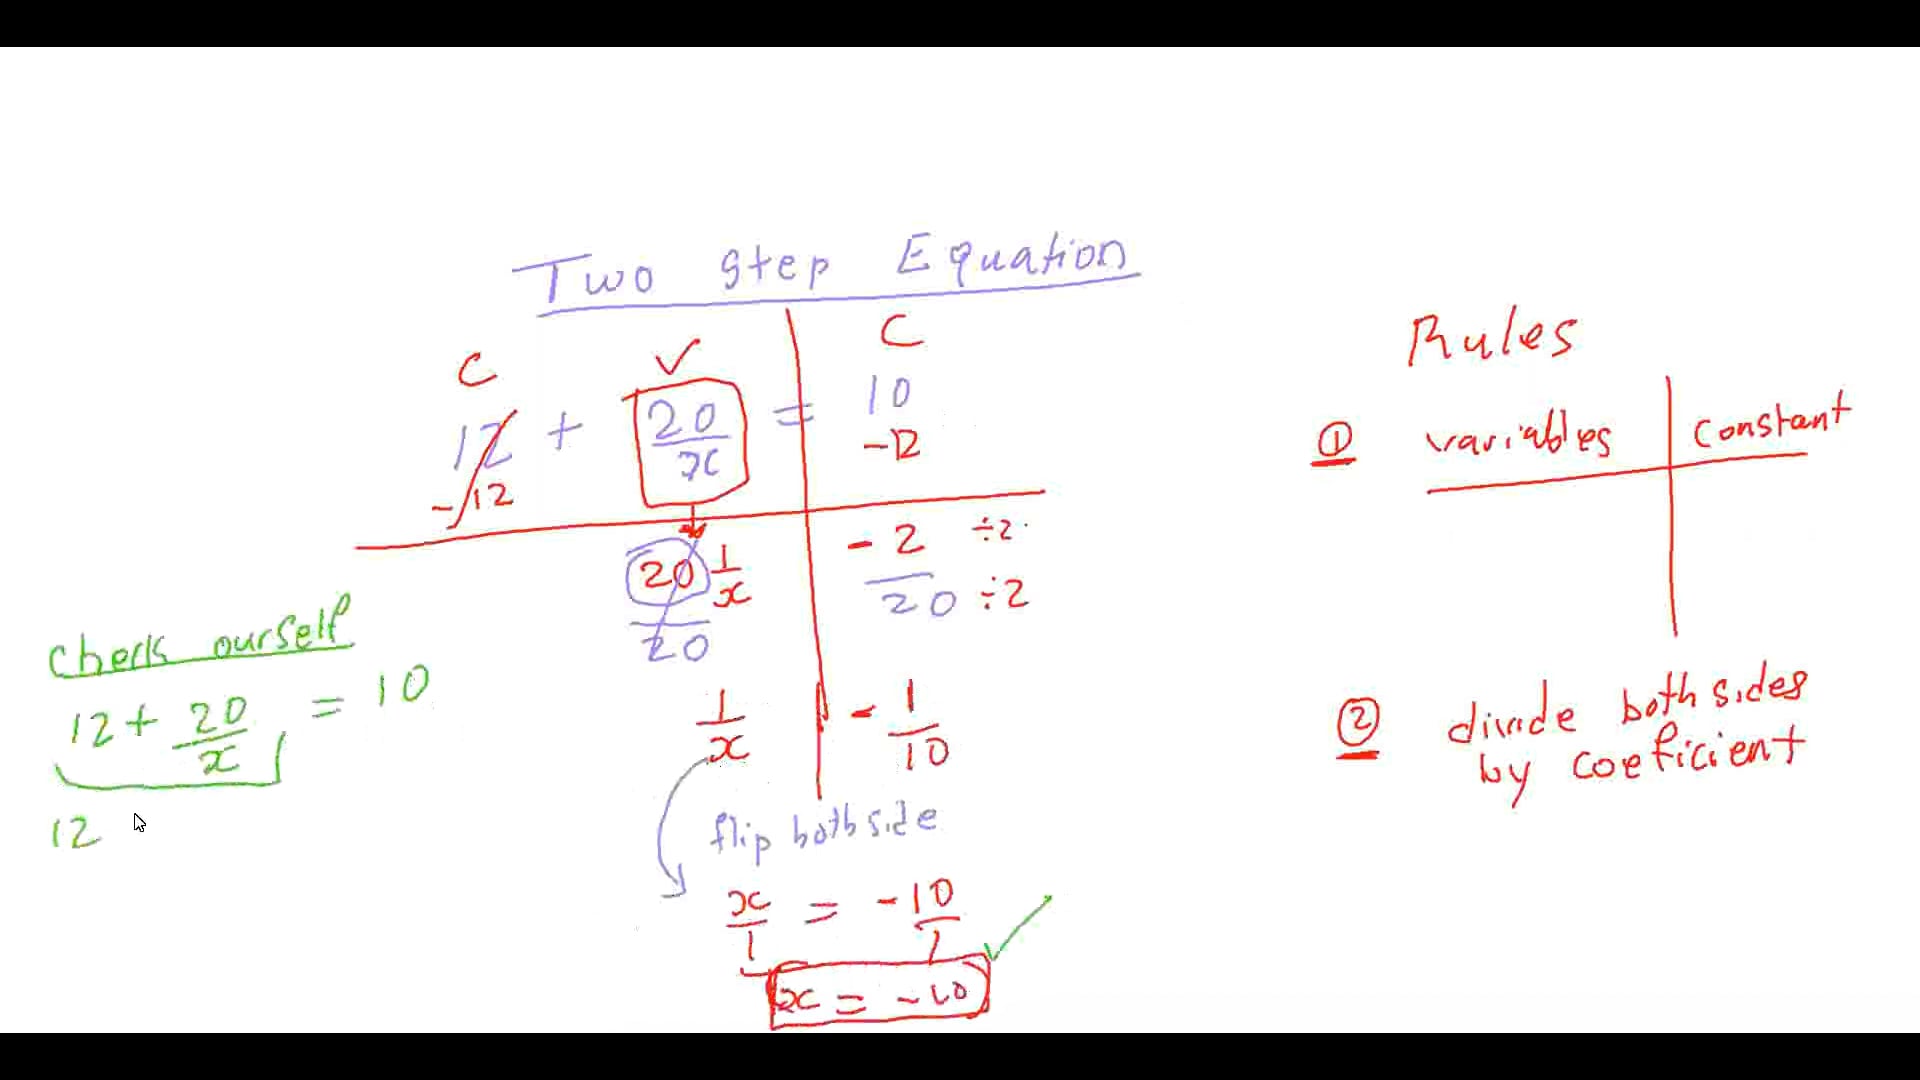 Two step Equation
C ✓ C
12 + 20/x = 10
-12 -12
20 1/x -2 ÷2
20 20 ÷2
1/x -1/10
flip both side
x/1 = -10/1
x = -10
Check ourself
12 + 20/x = 10
12
Rules
① variables | constant
② divide both sides
by coeficient